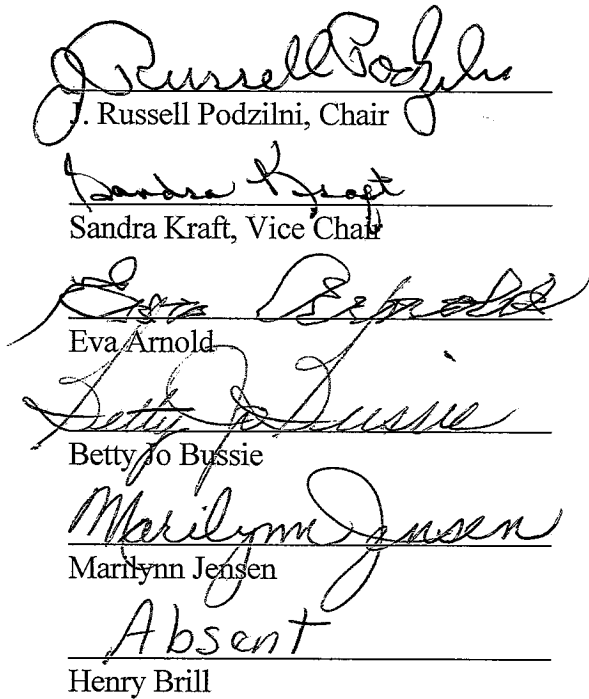 J Russell Podzilni
J. Russell Podzilni, Chair
Sandra Kraft
Sandra Kraft, Vice Chair
Eva Arnold
Eva Arnold
Betty Jo Bussie
Betty Jo Bussie
Marilynn Jensen
Marilynn Jensen
Absent
Henry Brill